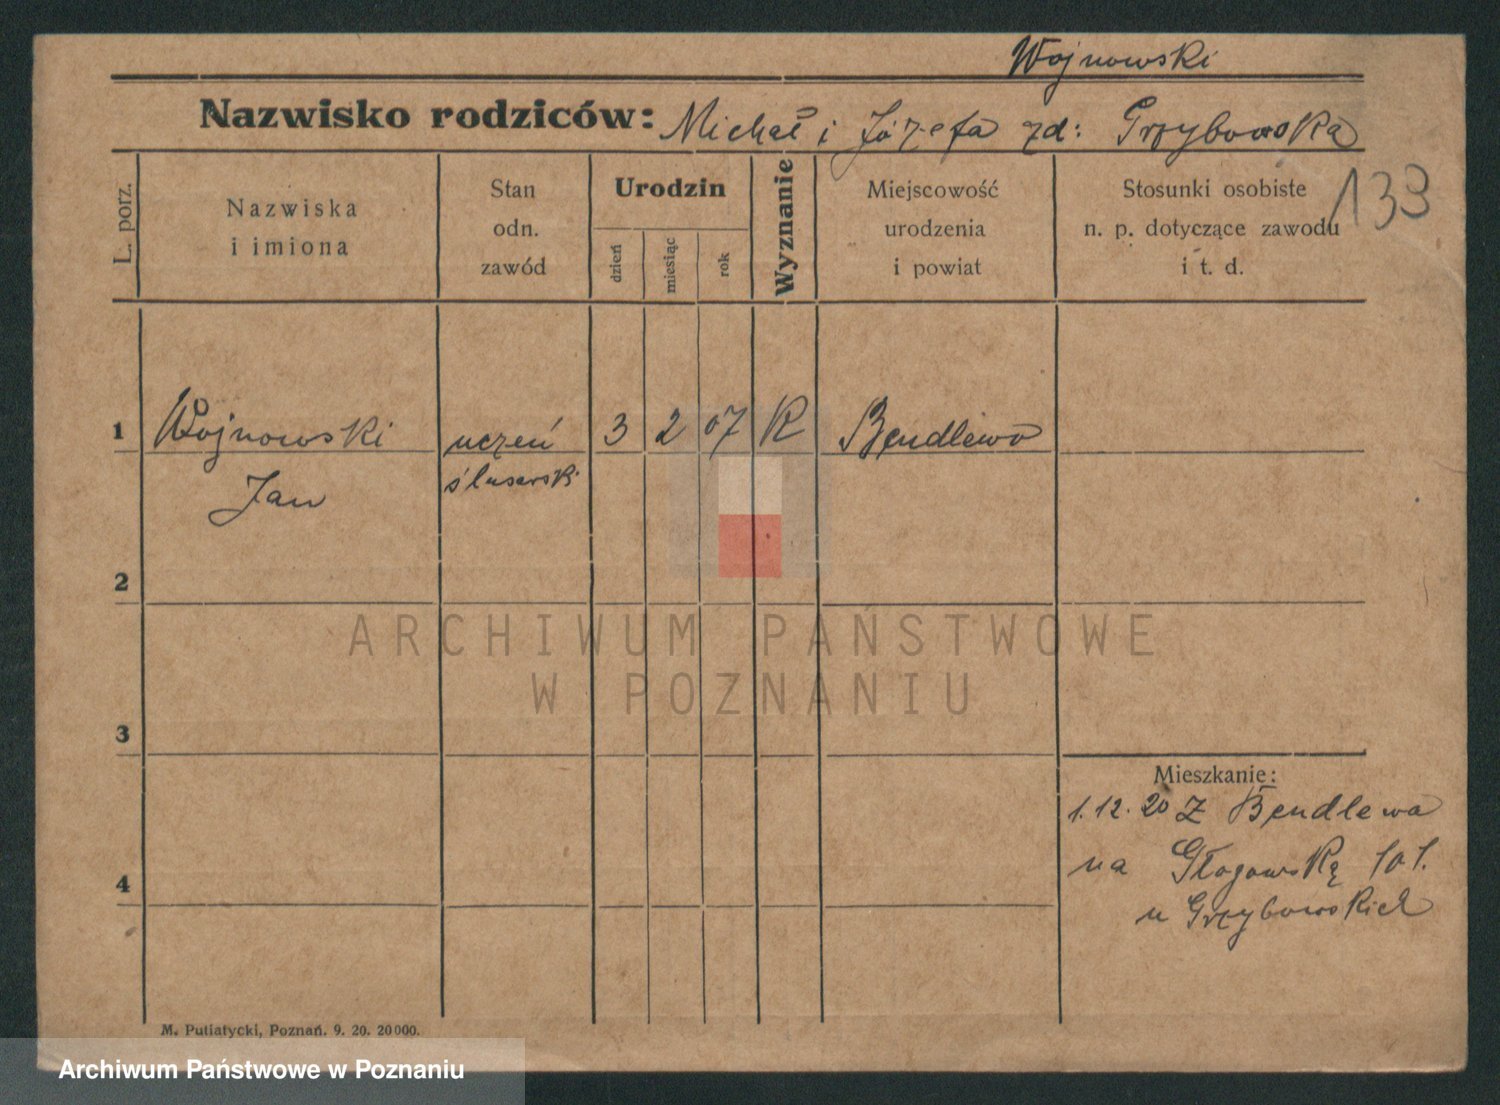 Wojnowski
Nazwisko rodziców: Michał i Józefa zd: Grzybowska
133
L. porz.
Nazwiska
i imiona
Stan
odn.
zawód
Urodzin
dzień
miesiąc
rok
Wyznanie
Miejscowość
urodzenia
i powiat
Stosunki osobiste
n. p. dotyczące zawodu
i t. d.
1 Wojnowski uczeń 3 2 07 K Bendlewo
Jan ślusarski
2
ARCHIWUM PAŃSTWOWE
W POZNANIU
3
Mieszkanie:
1.12.20 Z Bendlewa
na Głogowską 101.
u Grzybowskich
4
M. Putiatycki, Poznań. 9. 20. 20000.
Archiwum Państwowe w Poznaniu